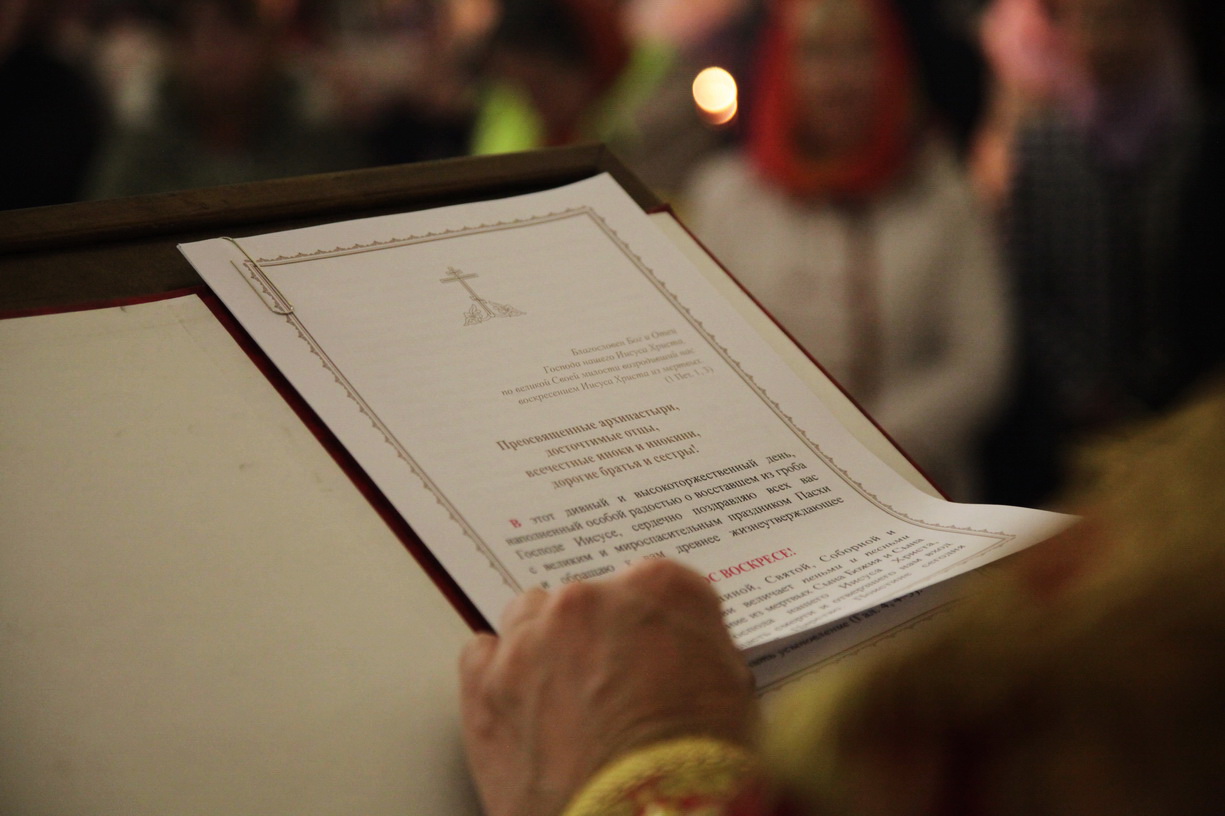 Благословен Бог и Отец
Господа нашего Иисуса Христа,
по великой Своей милости возродивший нас
воскресением Иисуса Христа из мертвых.
(1 Пет. 1, 3)
Преосвященные архипастыри,
досточтимые отцы,
всечестные иноки и инокини,
дорогие братья и сестры!
В этот дивный и высокоторжественный день,
наполненный особой радостью о восставшем из гроба
Господе Иисусе, сердечно поздравляю всех вас
с великим и мироспасительным праздником Пасхи
и обращаю к вам древнее жизнеутверждающее
ВОСКРЕСЕ!
Святой, Соборной и
величает песньми и песньми
из мертвых Сына Божия и Сына
нашего Иисуса Христа,
смерти и отверзшего нам вход
сегодня